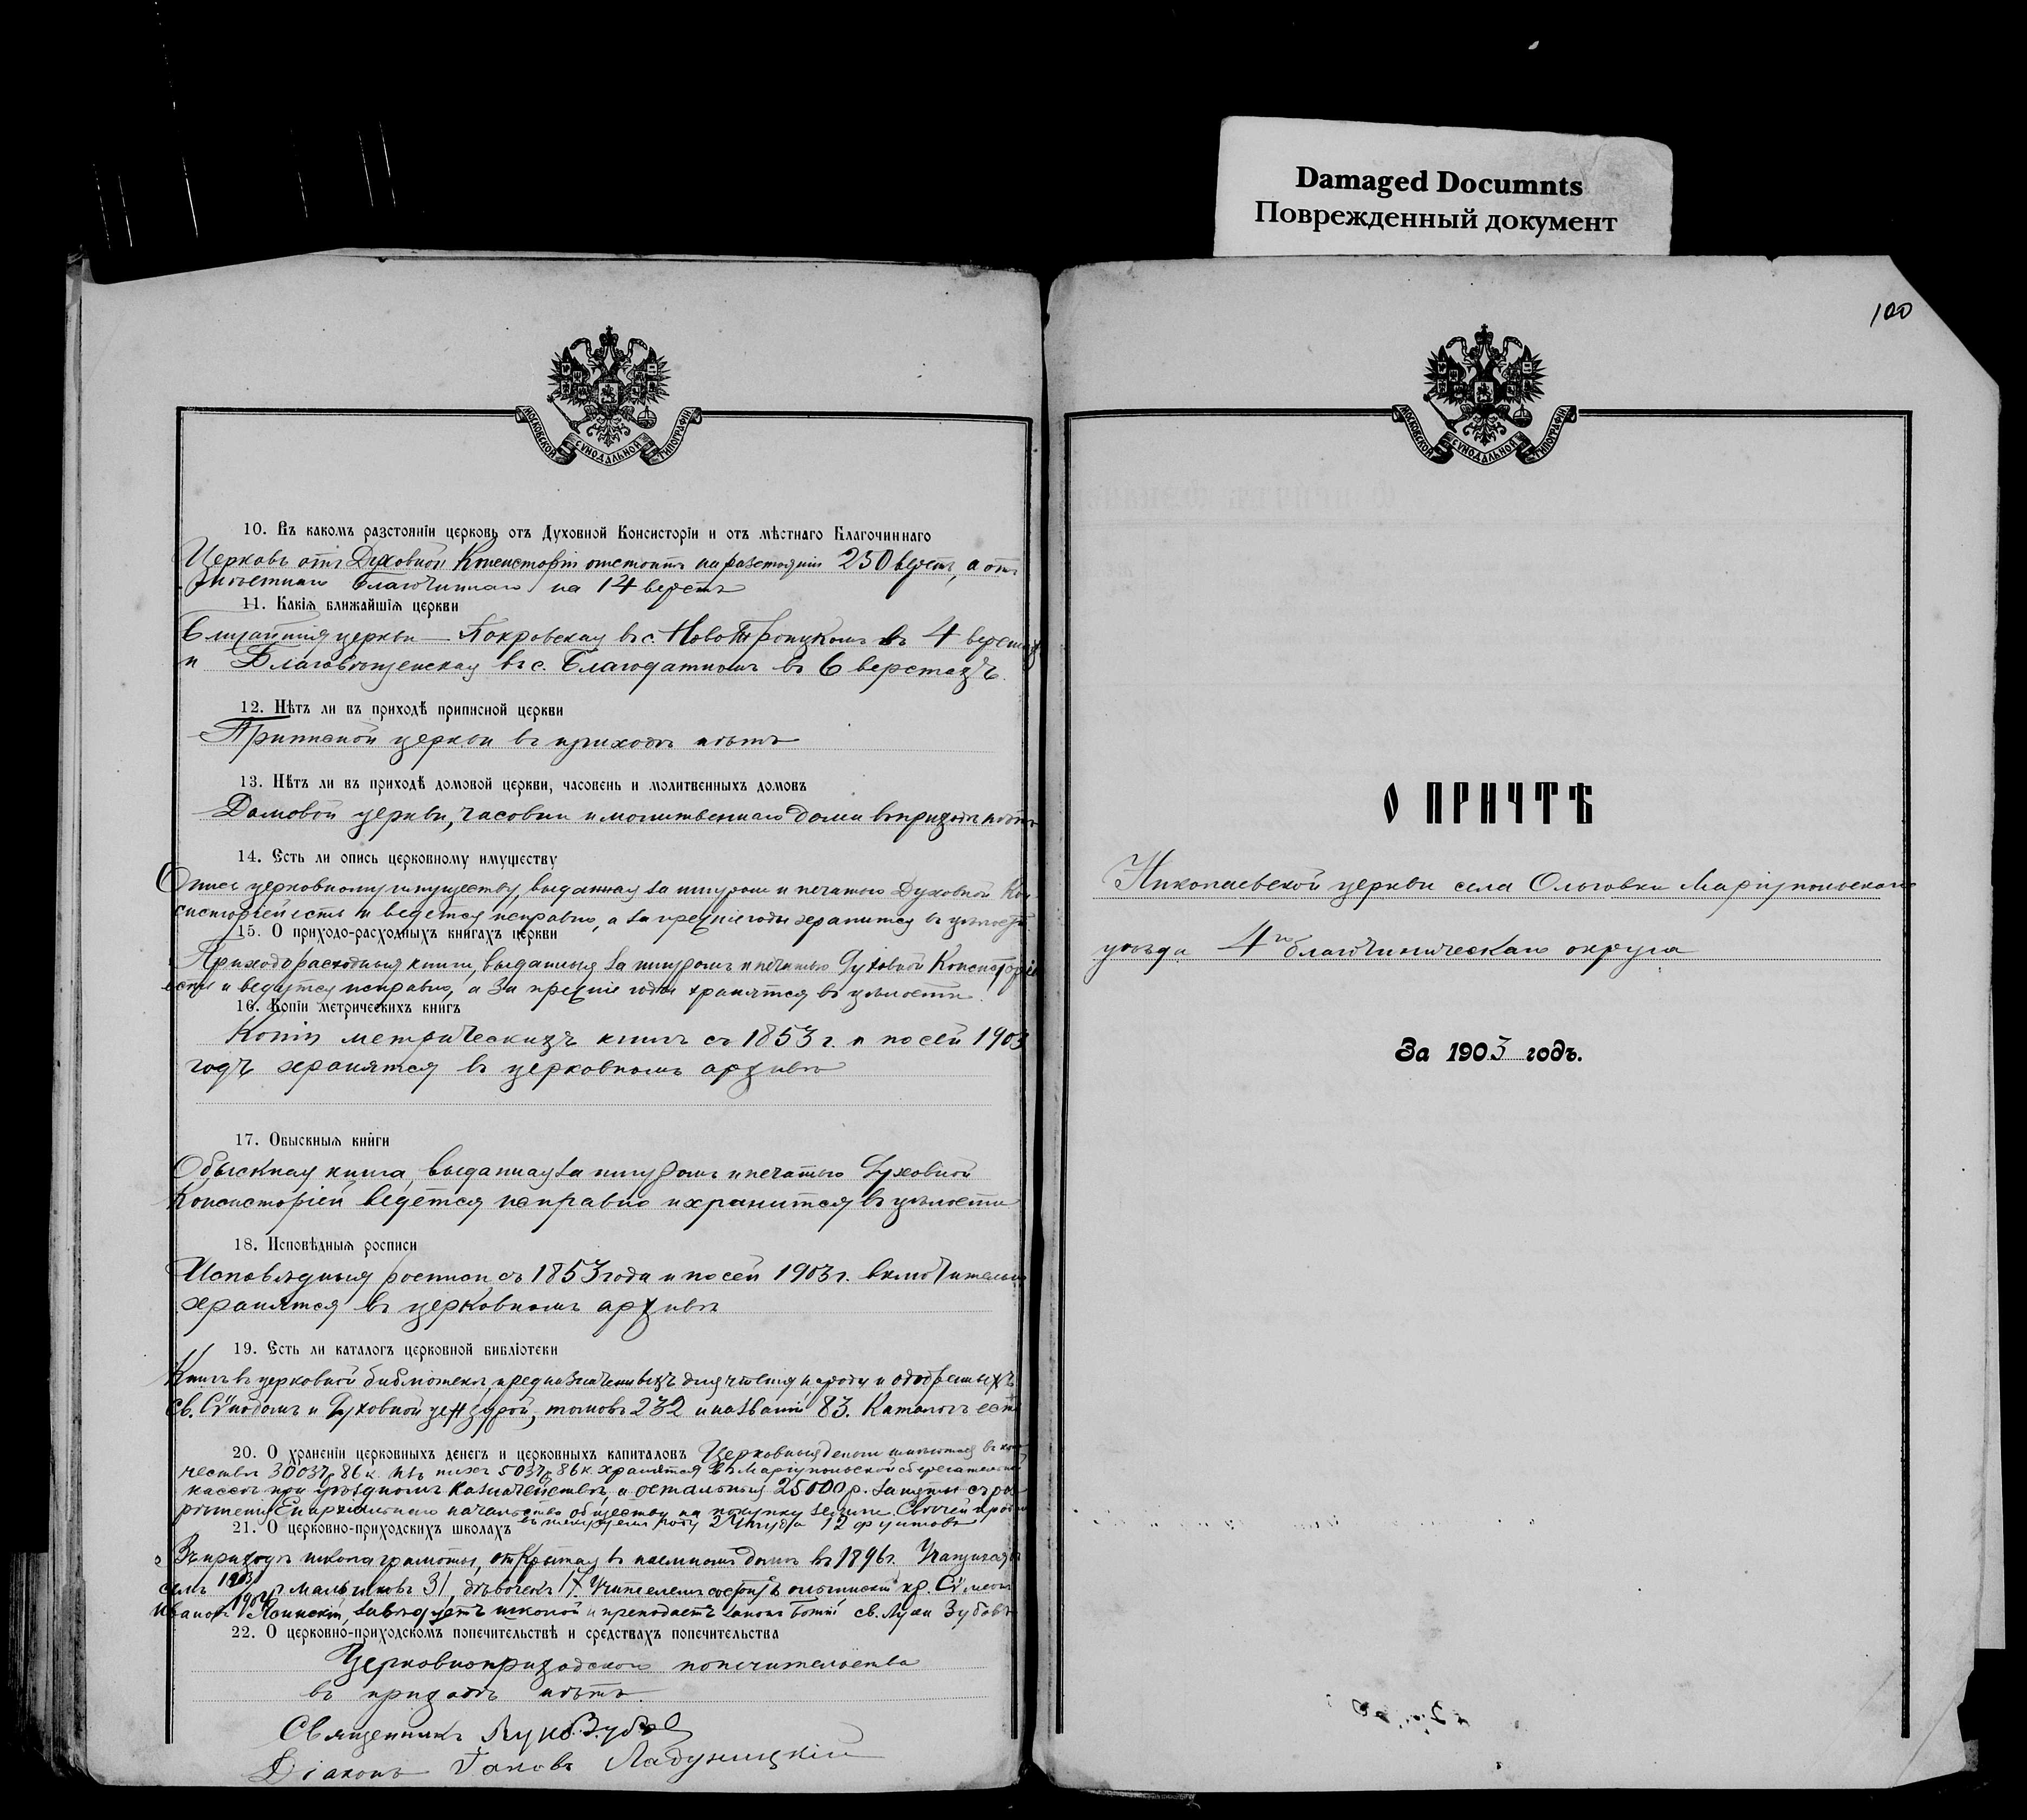 Damaged Documnts
Поврежденный документ
100
МОСКОВСКОЙ СѴНОДАЛЬНОЙ ТИПОГРАФІИ
10. Въ какомъ разстоянıи церковь отъ Духовной Консисторıи и отъ мѣстнаго Благочиннаго
Церковь отъ Духовной Консисторіи отстоитъ на разстояніи 250 верстъ, а отъ
мѣстнаго Благочиннаго на 14 верстъ
11. Какıѧ ближайшıѧ церкви
Ближайшія церкви — Покровская въ с. Ново Троицкомъ въ 4 верстахъ
и Благовѣщенская въ с. Благодатномъ въ 6 верстахъ.
12. Нѣтъ ли въ приходѣ приписной церкви
Приписной церкви въ приходѣ нѣтъ
13. Нѣтъ ли въ приходѣ домовой церкви, часовень и молитвенныхъ домовъ
Домовой церкви, часовни и молитвеннаго дома въ приходѣ нѣтъ
14. Есть ли опись церковному имуществу
Опись церковному имуществу, выданная за шнуромъ и печатью Духовной Кон-
систоріей есть и ведется исправно, а за прежніе годы хранится въ цѣлости
15. О приходо-расходныхъ книгахъ церкви
Приходорасходныя книги, выданныя за шнуромъ и печатью Духовной Консисторіей
есть и ведутся исправно, а за прежніе годы хранятся въ цѣлости.
16. Копıи метрическихъ книгъ
Копіи метрическихъ книгъ съ 1853 г. и по сей 1903
годъ хранятся въ церковномъ архивѣ
17. Обыскныѧ книги
Обыскная книга, выданная за шнуромъ и печатью Духовной
Консисторіей ведется исправно и хранится въ цѣлости
18. Исповѣдныѧ росписи
Исповѣдныя росписи съ 1853 года и по сей 1903 г. включительно
хранятся въ церковномъ архивѣ
19. Есть ли каталогъ церковной библıотеки
Книгъ въ церковной библіотекѣ, предназначенныхъ для чтенія народу и одобренныхъ
Св. Сѵнодомъ и Духовной цензурой, томовъ 232 и названій 83. Каталогъ есть
20. О храненıи церковныхъ денегъ и церковныхъ капиталовъ Церковныя деньги имѣются въ коли-
чествѣ 3003 р. 86 к. Изъ нихъ 503 р. 86 к. хранятся въ Маріупольской сберегательной
кассѣ при уѣздномъ казначействѣ, а остальныя 2500 р. заняты съ раз-
рѣшенія Епархіальнаго начальства обществу на покупку земли. Свѣчей продано
21. О церковно-приходскихъ школахъ въ текущемъ году 2 пуда 12 фунтовъ
Въ приходѣ школа грамоты, открытая въ наемномъ домѣ въ 1896 г. Учащихся въ
семъ 1903/1904 г. мальчиковъ 31, дѣвочекъ 17. Учителемъ состоитъ кр. Сѵмеонъ
Ивановъ Ясинскій, завѣдуетъ школой и преподаетъ законъ Божій св. Лука Зубовъ
22. О церковно-приходскомъ попечительствѣ и средствахъ попечительства
Церковноприходскаго попечительства
въ приходѣ нѣтъ.
Священникъ Лука Зубовъ
Діаконъ Іаковъ Ладужицкій
МОСКОВСКОЙ СѴНОДАЛЬНОЙ ТИПОГРАФІИ
О ПРИЧТѢ
Николаевской церкви села Ольговки Маріупольскаго
уѣзда 4го благочинническаго округа
За 1903 годъ.